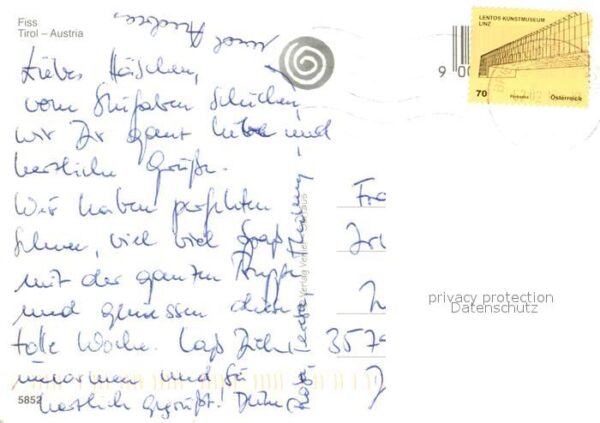 Fiss
Tirol – Austria
und Andrea
LENTOS KUNSTMUSEUM
LINZ
70
Österreich
9 00
Liebes Häschen,
vom Skifahren schicken
wir Dir ganz liebe und
herzliche Grüße.
Wir haben perfekten
Schnee, viel viel Spaß
mit der ganzen Truppe
und genießen diese
tolle Woche. Lass Dich
umarmen und sei
herzlich gegrüßt! Deine
Fra
357
privacy protection
Datenschutz
5852